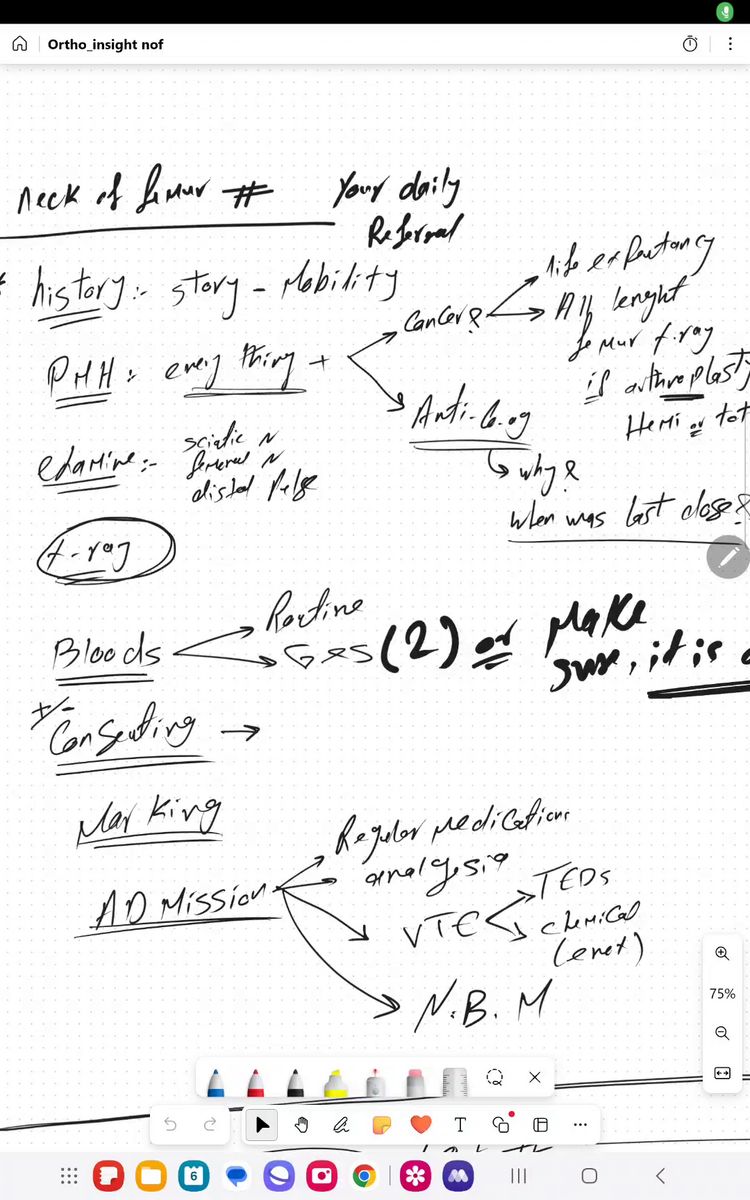 Ortho_insight nof
Neck of femur #
Your daily
Referral
history:- story - Mobility
PMH: every thing +
Cancer?
life expectancy
All lenght
femur x.ray
if arthroplasty
Hemi or tot
Anti-Co.ag
why?
when was last dose?
examine:-
sciatic N
femoral N
distal Pulse
x-ray
Bloods
Routine
G&S (2) or Make
sure, it is
+/-
Consenting →
Marking
ADMission
Regular Medications
analgesia
VTE
TEDs
chemical
(enox)
N.B.M
75%
T
6